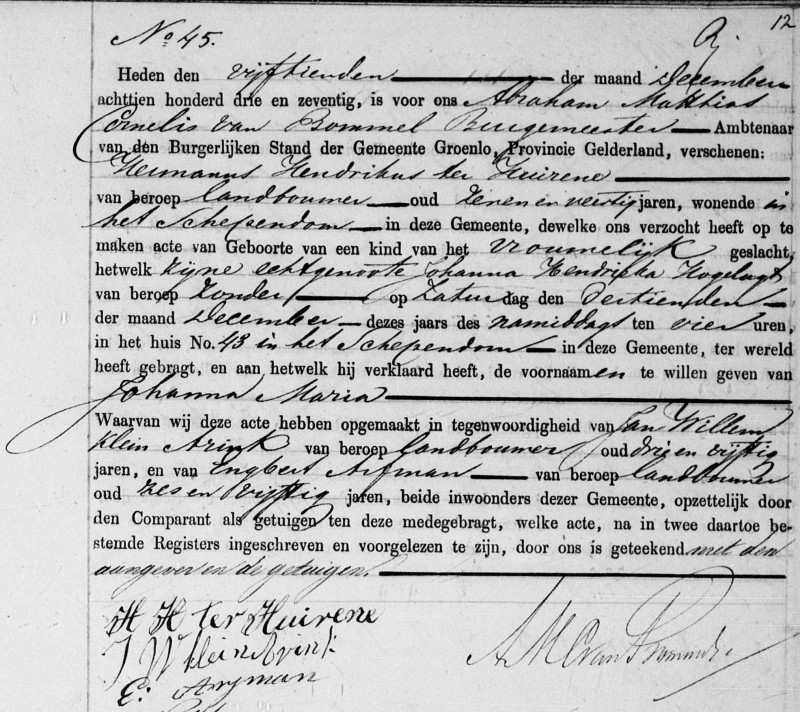 12
No 45.
Heden den vijftienden der maand December
achttien honderd drie en zeventig, is voor ons Abraham Matthias
Cornelis van Bommel Burgemeester Ambtenaar
van den Burgerlijken Stand der Gemeente Groenlo, Provincie Gelderland, verschenen:
Hermanus Hendrikus ter Huirene
van beroep landbouwer oud zeven en veertig jaren, wonende in
het Schependom in deze Gemeente, dewelke ons verzocht heeft op te
maken acte van Geboorte van een kind van het vrouwelijk geslacht,
hetwelk zijne echtgenoote Johanna Hendrika Hogelugt
van beroep zonder op Zaturdag den dertienden
der maand December dezes jaars des namiddags ten vier uren,
in het huis No. 43 in het Schependom in deze Gemeente, ter wereld
heeft gebragt, en aan hetwelk hij verklaard heeft, de voornaamen te willen geven van
Johanna Maria
Waarvan wij deze acte hebben opgemaakt in tegenwoordigheid van Jan Willem
klein Arink van beroep landbouwer oud drie en vijftig
jaren, en van Engbert van beroep landbouwer
oud zes en vijftig jaren, beide inwoonders dezer Gemeente, opzettelijk door
den Comparant als getuigen ten deze medegebragt, welke acte, na in twee daartoe be-
stemde Registers ingeschreven en voorgelezen te zijn, door ons is geteekend met den
aangever en de getuigen.
H H ter Huirene
J W klein Arink
E.
A M C van Bommel